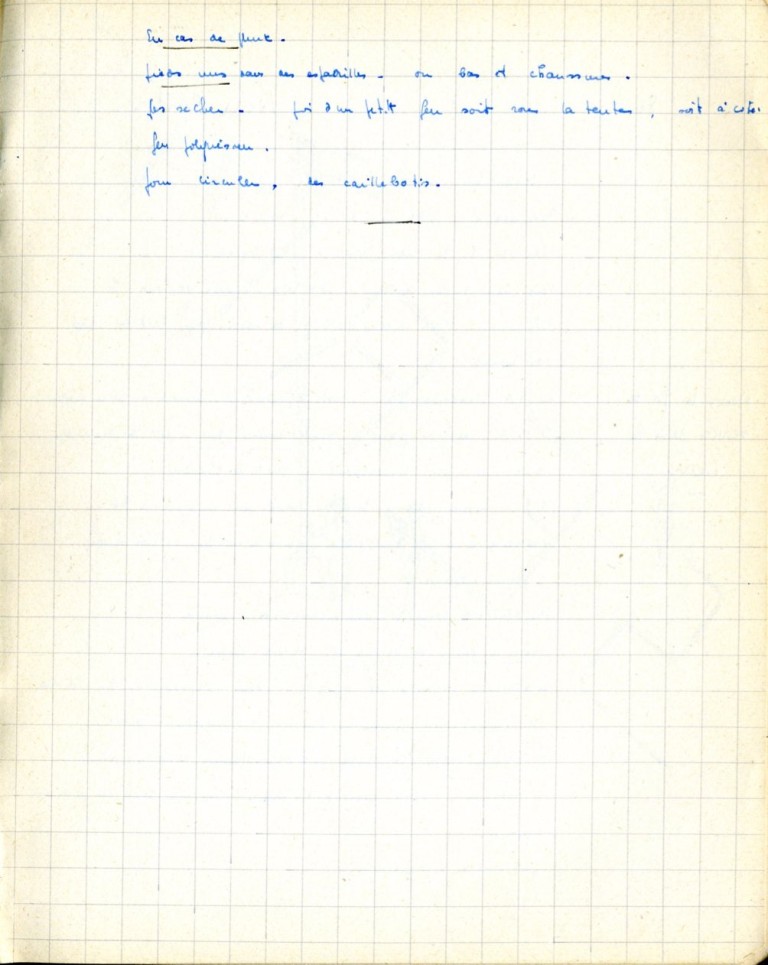 En cas de pluie.
pieds nus dans des espadrilles - ou bas et chaussures.
les secher. près d'un petit feu soit sous la tente, soit à côté.
feu polynésien.
pour circuler, des caillebotis.